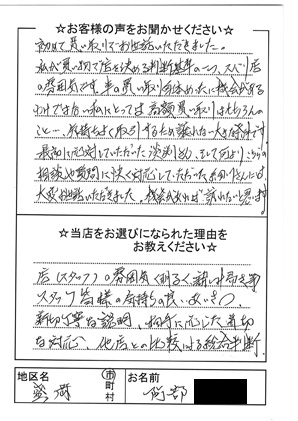 ☆お客様の声をお聞かせください☆
初めて買い取りでお世話いただきました。
私が買い物で店を決める判断基準の一つ、スバリ店
の雰囲気です。車の買い取り自体めったに機会がある
わけではない私にとっては高額買い取りはもちろんの
こと…気持ちよく取引するのが譲れない大切な条件です
最初に応対していただいた淡渕さん、そして何よりこちらの
相談や質問に快く対応していただいた
大変お世話いただきました。機会があれば訪れたい思います
☆当店をお選びになられた理由を
お教えください☆
店(スタッフ)の雰囲気(明るく親しみ引き事
スタッフ皆様の気持ちの良いあいさつ、
親切丁寧な説明、相手に応じた適切
な対応、他店との比較による総合判断
地区名
市
町
村
お名前
阿部